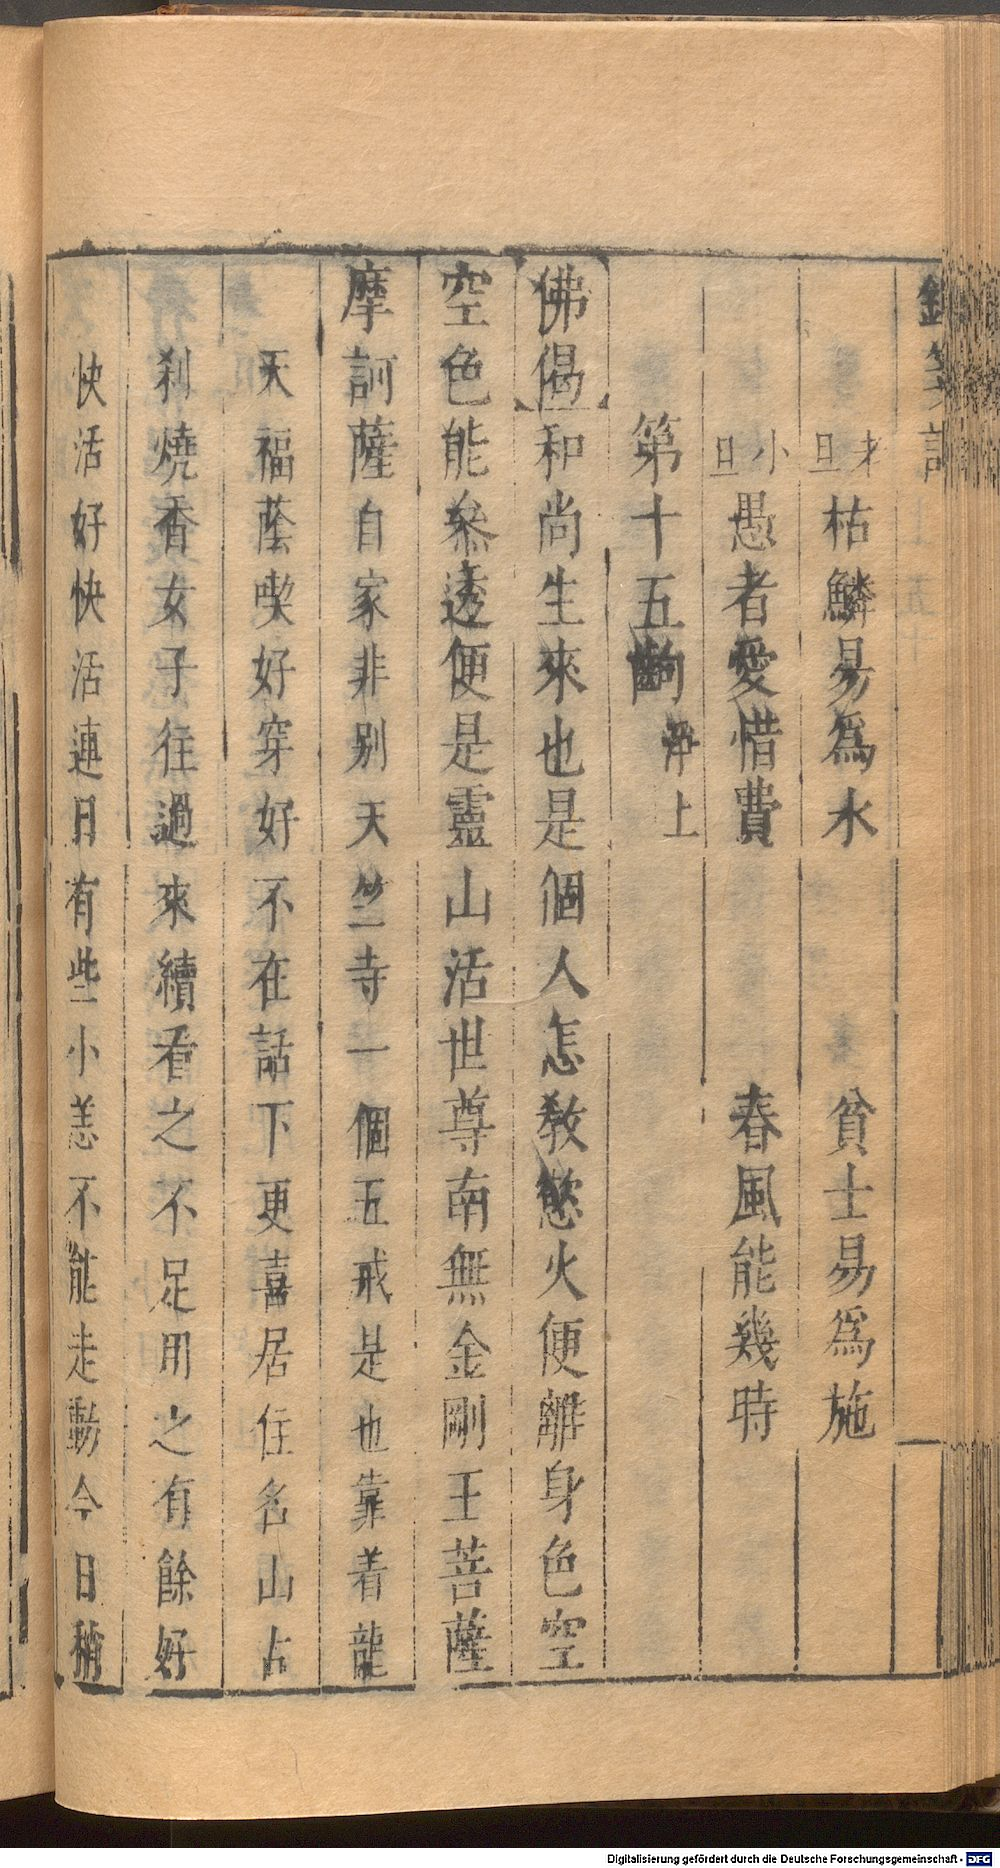 老旦枯鱗易爲水　貧士易爲施
小旦愚者愛惜費　春風能幾時
第十五齣　淨上
佛偈和尚生來也是個人怎教慾火便離身色空
空色能參透便是靈山活世尊南無金剛王菩薩
摩訶薩自家非別天竺寺一個五戒是也靠着龍
天福蔭喫好穿好不在話下更喜居住名山古
刹燒香女子往過來續看之不足用之有餘好
快活好快活連日有些小恙不能走動今日稍
Digitalisierung gefördert durch die Deutsche Forschungsgemeinschaft - DFG